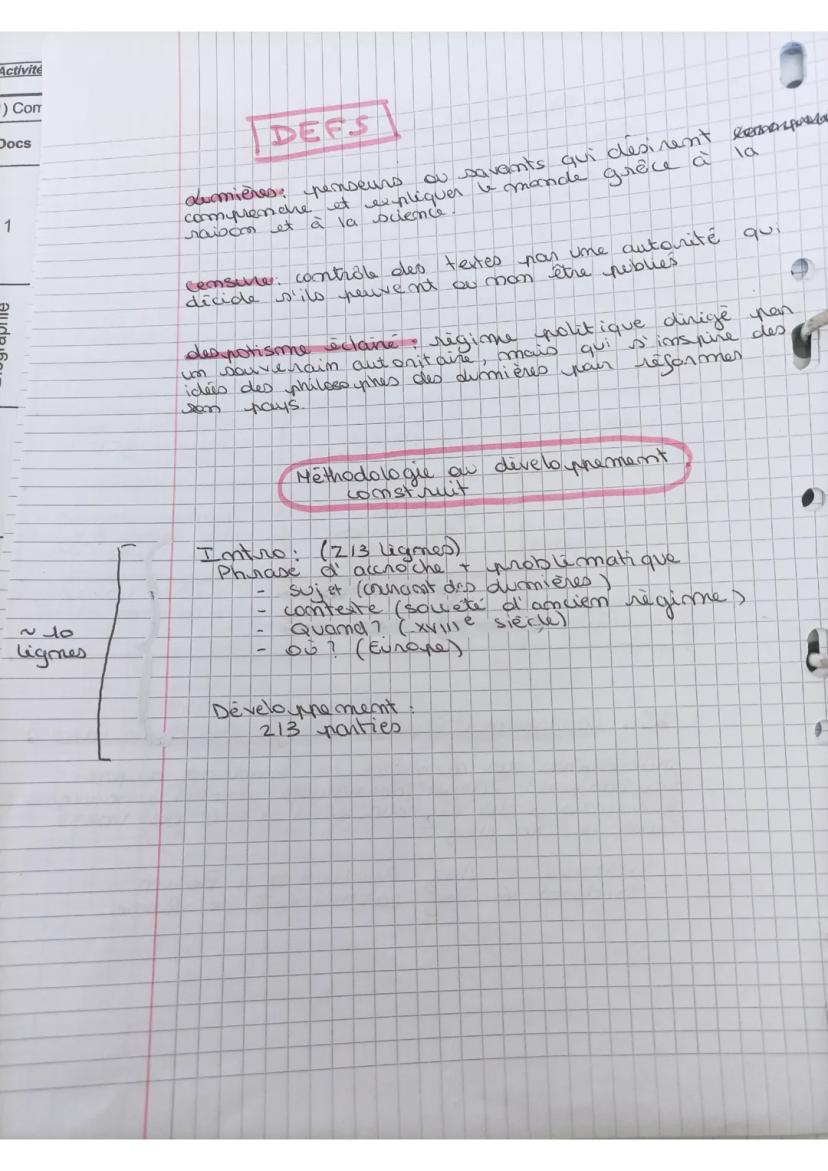 Activité
) Com
Docs
1
DEFS
Lumières: penseurs ou savants qui désirent
comprendre et expliquer le monde grâce à la
raison et à la science.
Censure: contrôle des textes par une autorité qui
décide s'ils peuvent ou non être publiés
despotisme éclairé: régime politique dirigé par
un souverain autoritaire, mais qui s'inspire des
idées des philosophes des Lumières pour réformer
son pays.
Méthodologie du développement
construit
Intro: (2/3 lignes)
Phrase d'accroche + problématique
- sujet (courant des Lumières)
- contexte (société d'ancien régime)
- Quand? (XVIIIe siècle)
- Où? (Europe)
~ 10
lignes
Développement:
2/3 parties